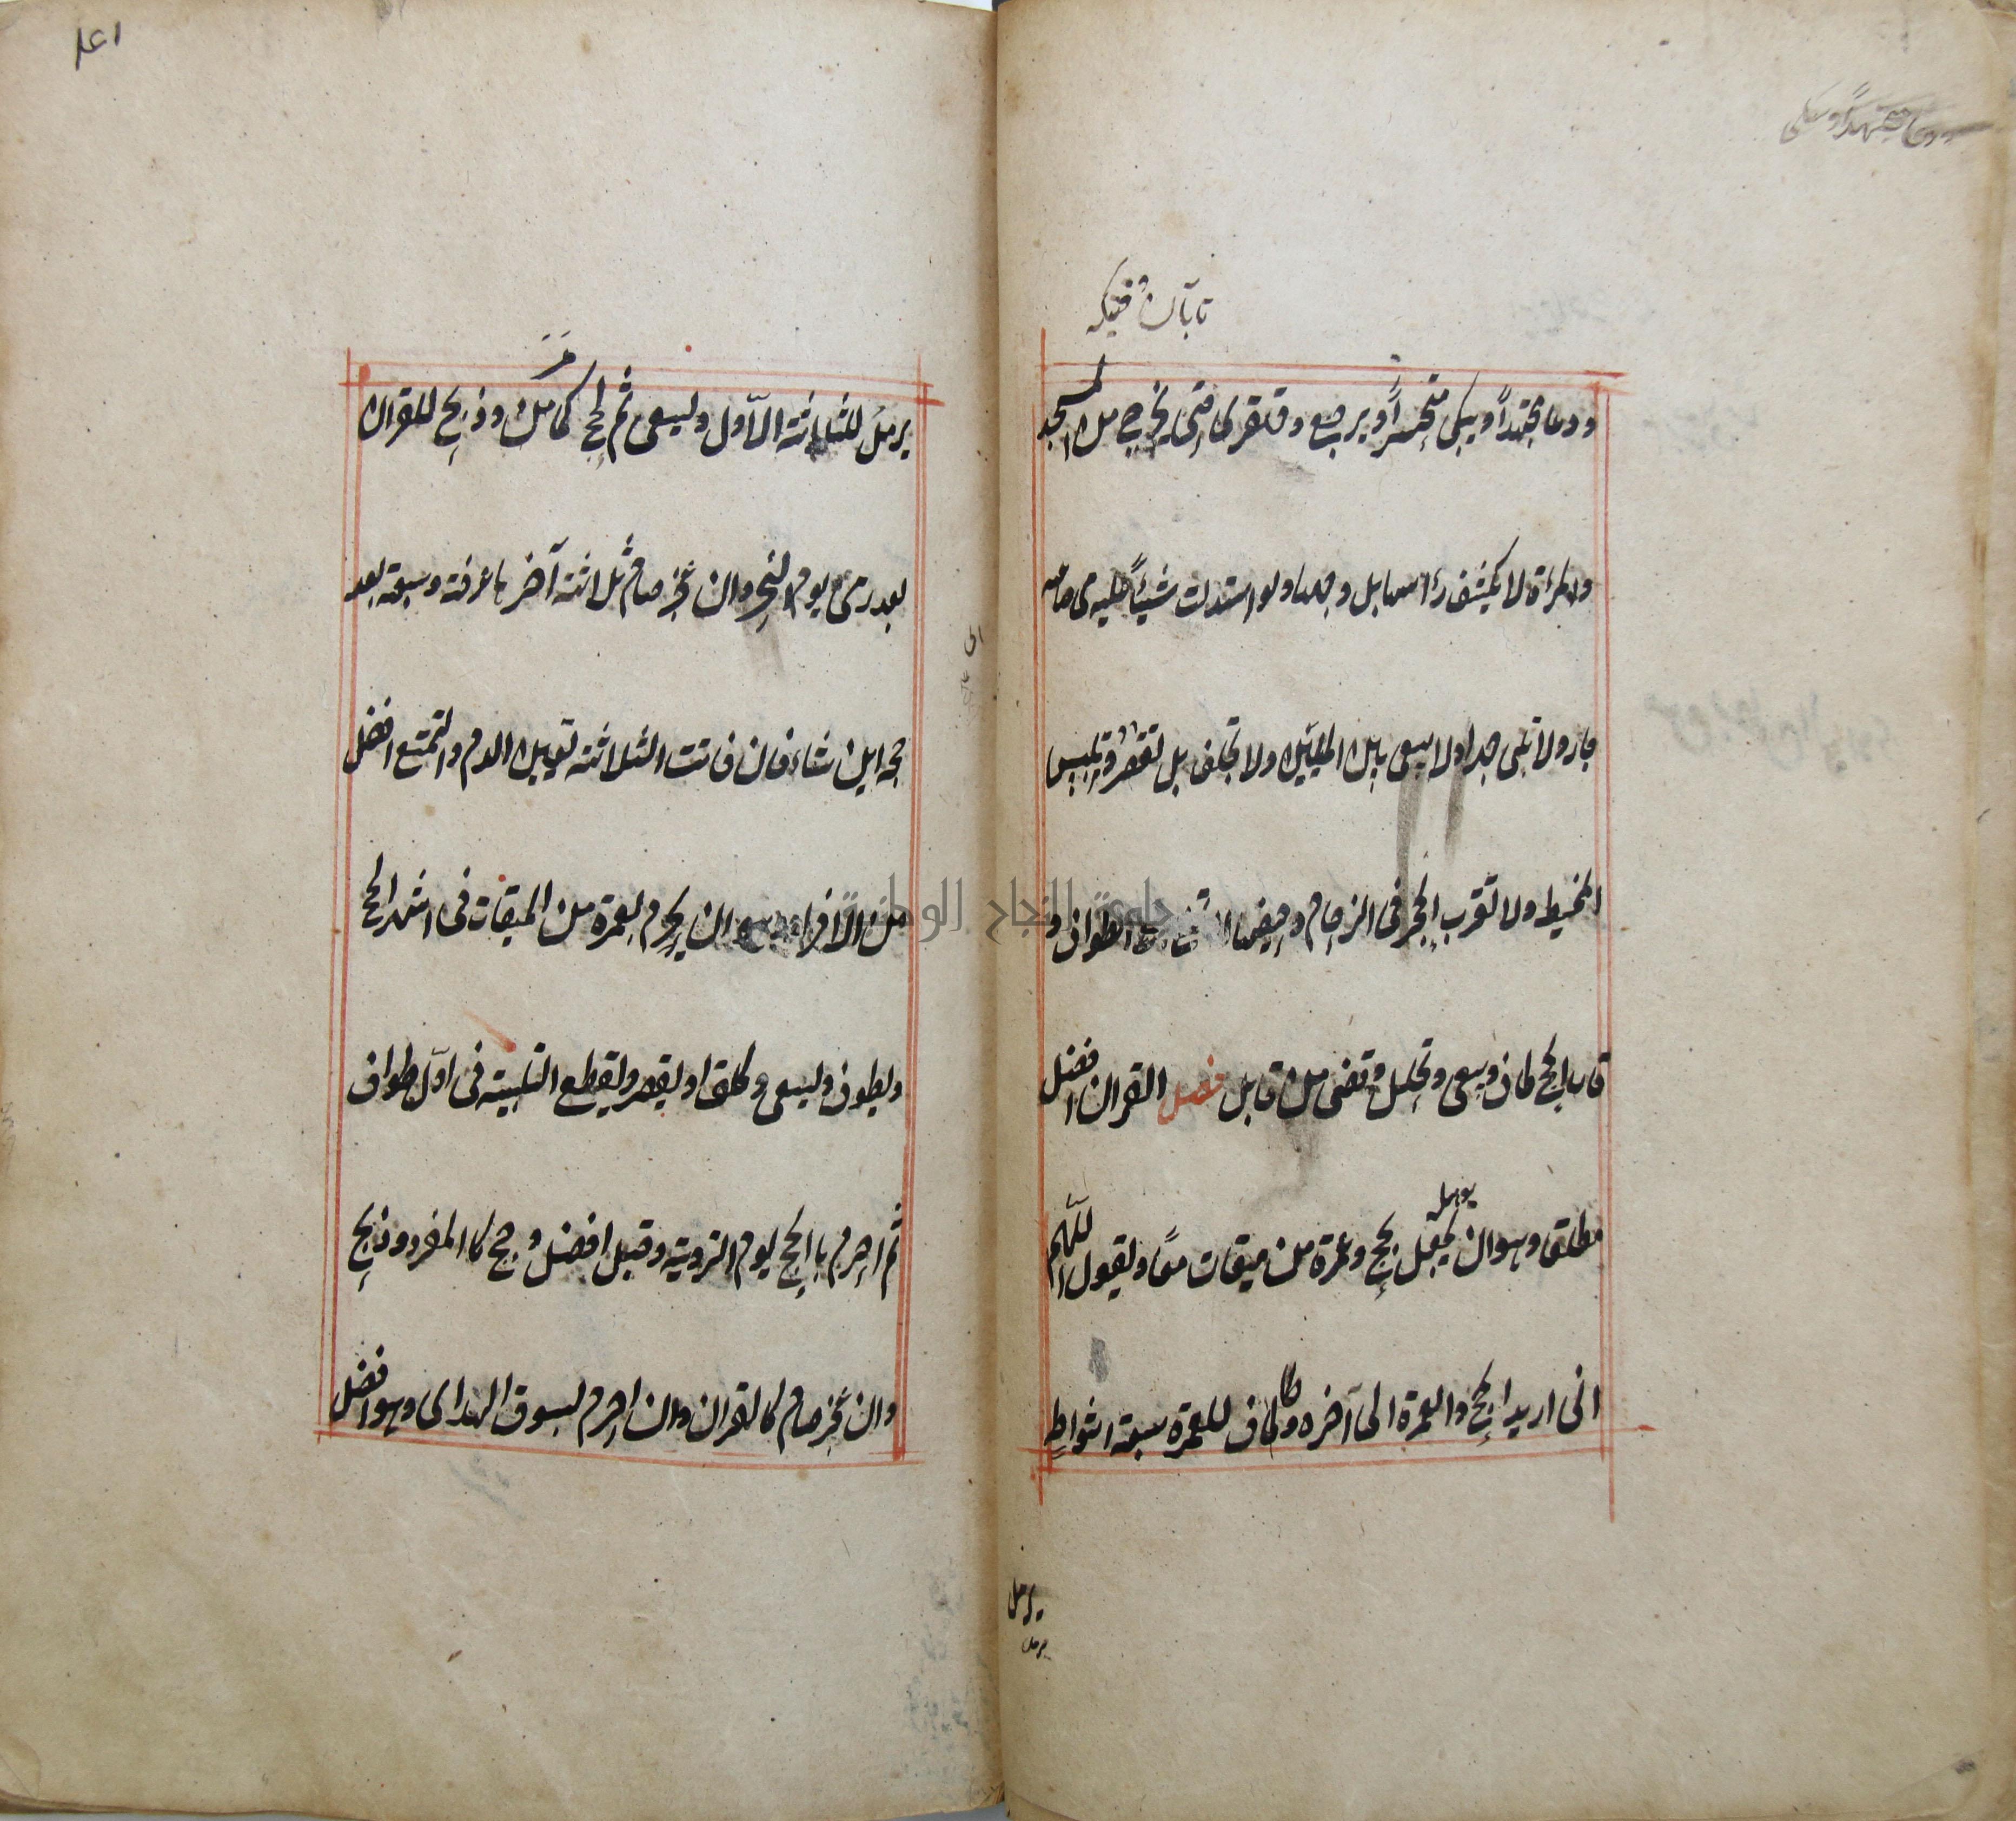 تا بآن
ودعا مجتهداً ويبكى متحسراً ويرجع وقهقرى حتى يخرج من المسجد
والمرأة لا يكشف رأسها بل وجهها ولو استدلت شيئاً عليه
جاز ولا تلبى جهرا ولا يسعى بين الميلين ولا تحلق بل تقصر وتلبس
المخيط ولا تقرب الحجر فى الزحام وحيضها الطواف و
فات الحج طاف ويسعى وتحلل وتقضى من قابل فصل القران افضل
مطلقا وهو ان يهل بحج وعمرة من ميقات معا ويقول اللهم
انى اريد الحج والعمرة الى آخره وطاف للعمرة سبعة اشواط
يرمل
يرمل
يرمل للثلاثة الاول ويسعى ثم لحج كما مر وذبح للقران
بعد رمى يوم النحر وان عجز صام ثلاثة آخرها عرفة وسبعة بعد
حجه اين شاء فان فاتت الثلاثة تعين الدم والتمتع افضل
من الافراد وهو ان يحرم بعمرة من الميقات فى اشهر الحج
ويطوف ويسعى وحلق او يقصر ويقطع التلبية فى اول طواف
ثم احرم بالحج يوم التروية وقبل افضل وحج كالمفرد وذبح
وان عجز صام كالقران وان احرم لسوق الهداى وهو افضل